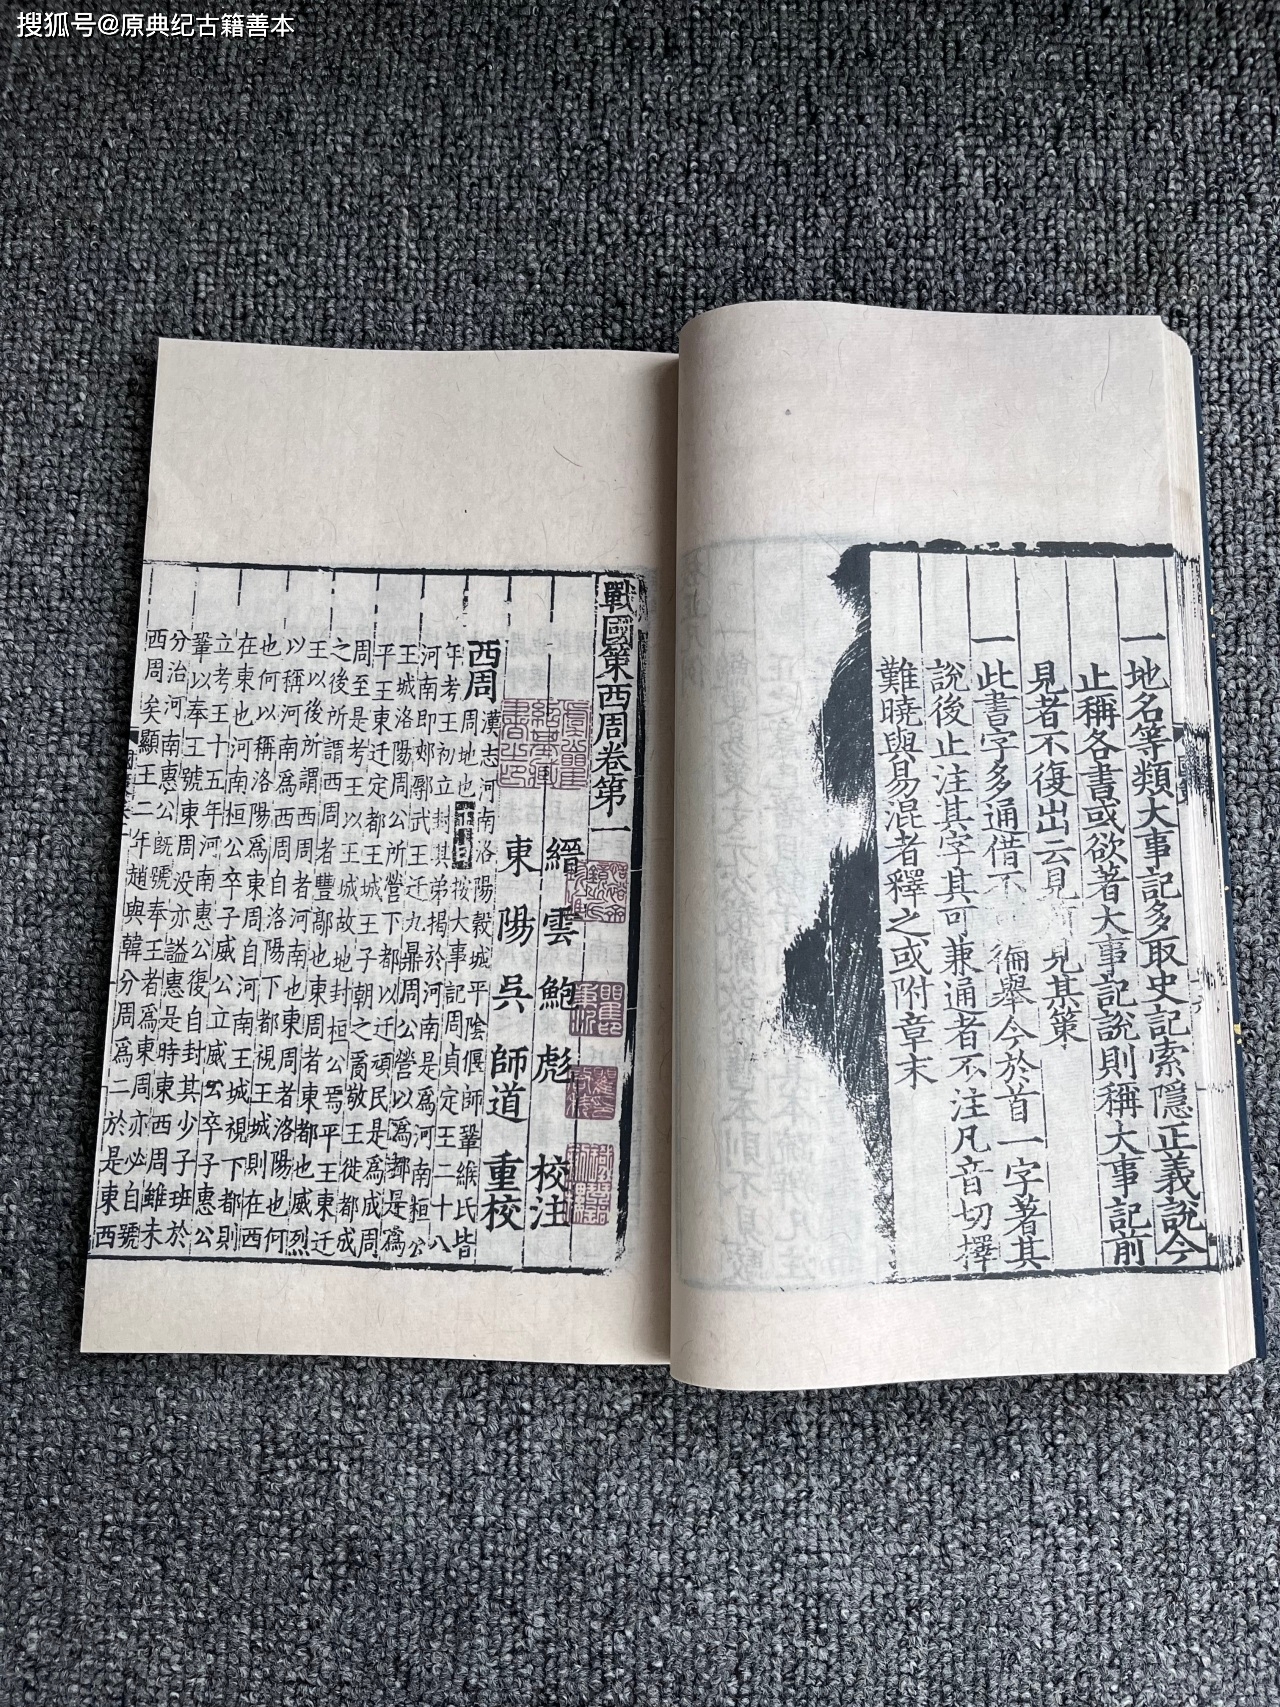 搜狐号@原典纪古籍善本
一地名等類大事記多取史記索隱正義說今
止稱各書或欲著大事記說則稱大事記前
見者不復出云見 見其策
一此書字多通借不 徧舉今於首一字著其
說後止注其字其可兼通者不注凡音切擇
難曉與易混者釋之或附章末
戰國策西周卷第一
縉雲鮑彪校注
東陽吳師道重校
西周 漢志河南洛陽穀城平陰偃師鞏緱氏皆
周地也 按大事記周貞定王二十八
年考王初立封其弟揭於河南是爲河南桓公
河南即郟鄏武王遷九鼎周公營以爲都是爲
王城洛陽周公所營下都以遷頑民是爲成周
平王東遷定都王城王子朝之亂敬王徙都成
周至是考王以王城故地封桓公焉平王東遷
之後所謂西周者豐鄗也東周者東都也威烈
王以後所謂西周者河南也東周者洛陽也何
以稱河南爲西周自洛陽下都視王城則在西
也何以稱洛陽爲東周自河南王城視下都則
在東也河南桓公卒子威公立威公卒子惠公
立考王十五年河南惠公復自封其少子班於
鞏以奉王號東周没亦謚惠是時東西周雖未
分治河南惠公旣號奉王者爲東周亦必自號
西周矣顯王二年趙與韓分周爲二於是東西